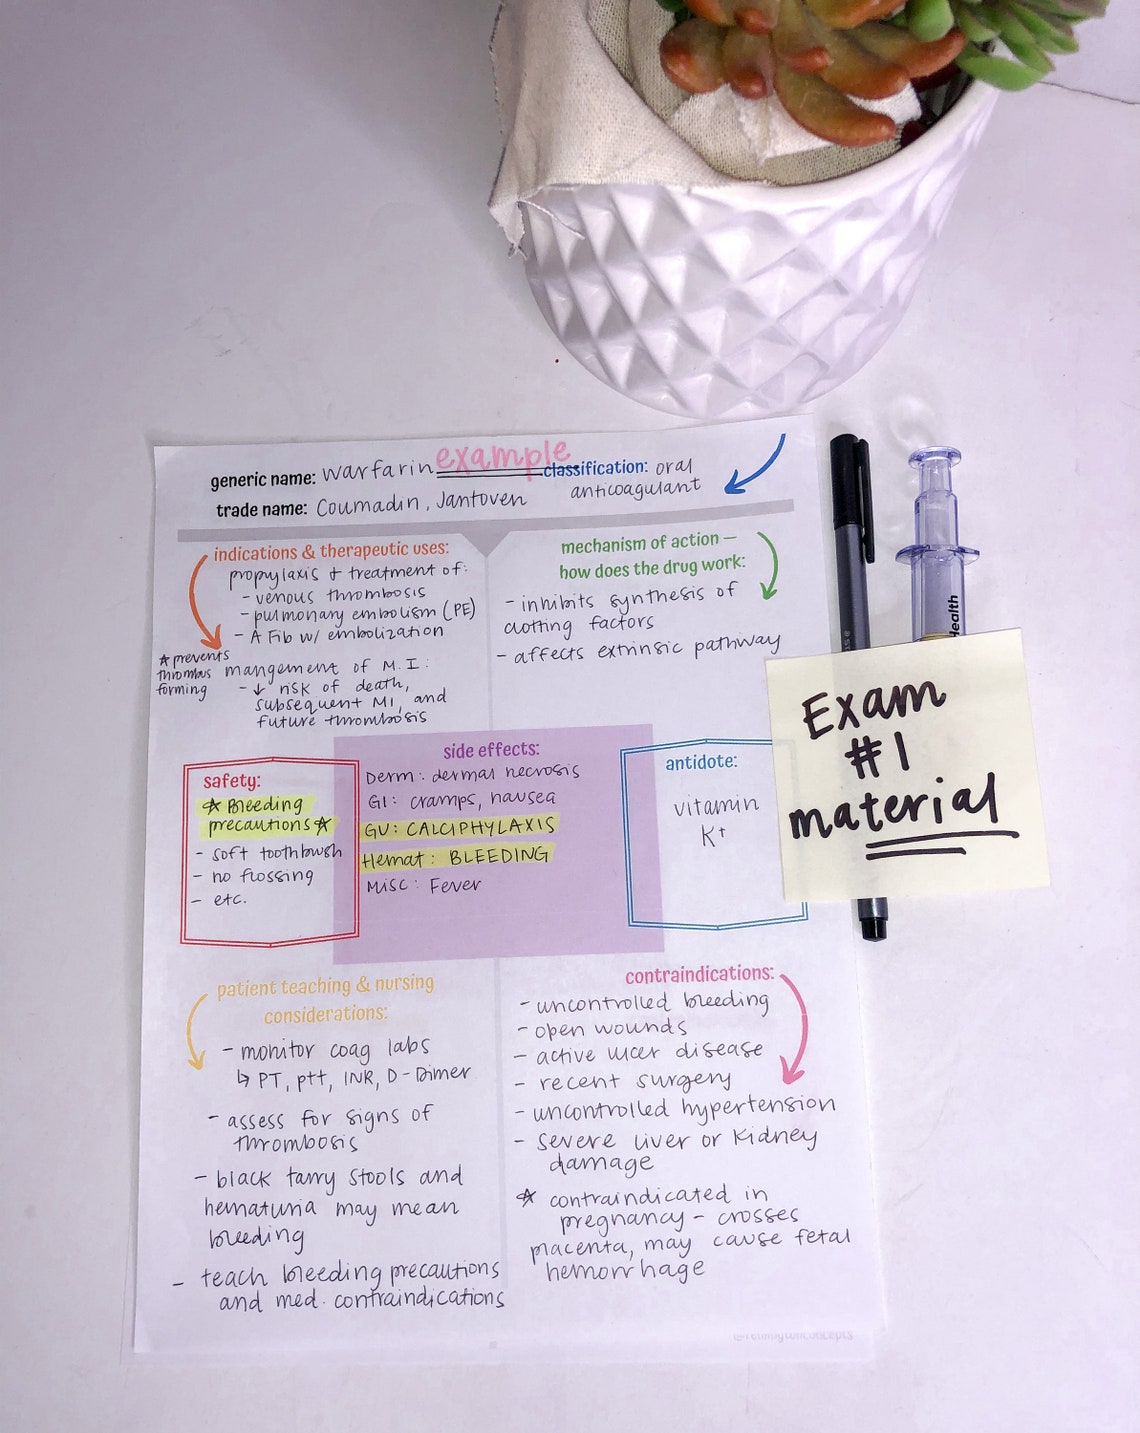 example
generic name: warfarin
classification: oral
anticoagulant
trade name: Coumadin, Jantoven
indications & therapeutic uses:
propylaxis + treatment of:
- venous thrombosis
- pulmonary embolism (PE)
- A Fib w/ embolization
☆ prevents
thrombus
forming
mangement of M.I:
- ↓ risk of death,
subsequent MI, and
future thrombosis
mechanism of action –
how does the drug work:
- inhibits synthesis of
clotting factors
- affects extrinsic pathway
safety:
☆ Bleeding
precautions ☆
- soft toothbrush
- no flossing
- etc.
side effects:
Derm: dermal necrosis
GI: cramps, nausea
GU: CALCIPHYLAXIS
Hemat: BLEEDING
Misc: Fever
antidote:
vitamin
K+
Health
Exam
#1
material
patient teaching & nursing
considerations:
- monitor coag labs
↳ PT, ptt, INR, D-Dimer
- assess for signs of
thrombosis
- black tarry stools and
hematuria may mean
bleeding
- teach bleeding precautions
and med. contraindications
contraindications:
- uncontrolled bleeding
- open wounds
- active ulcer disease
- recent surgery
- uncontrolled hypertension
- severe liver or kidney
damage
☆ contraindicated in
pregnancy - crosses
placenta, may cause fetal
hemorrhage